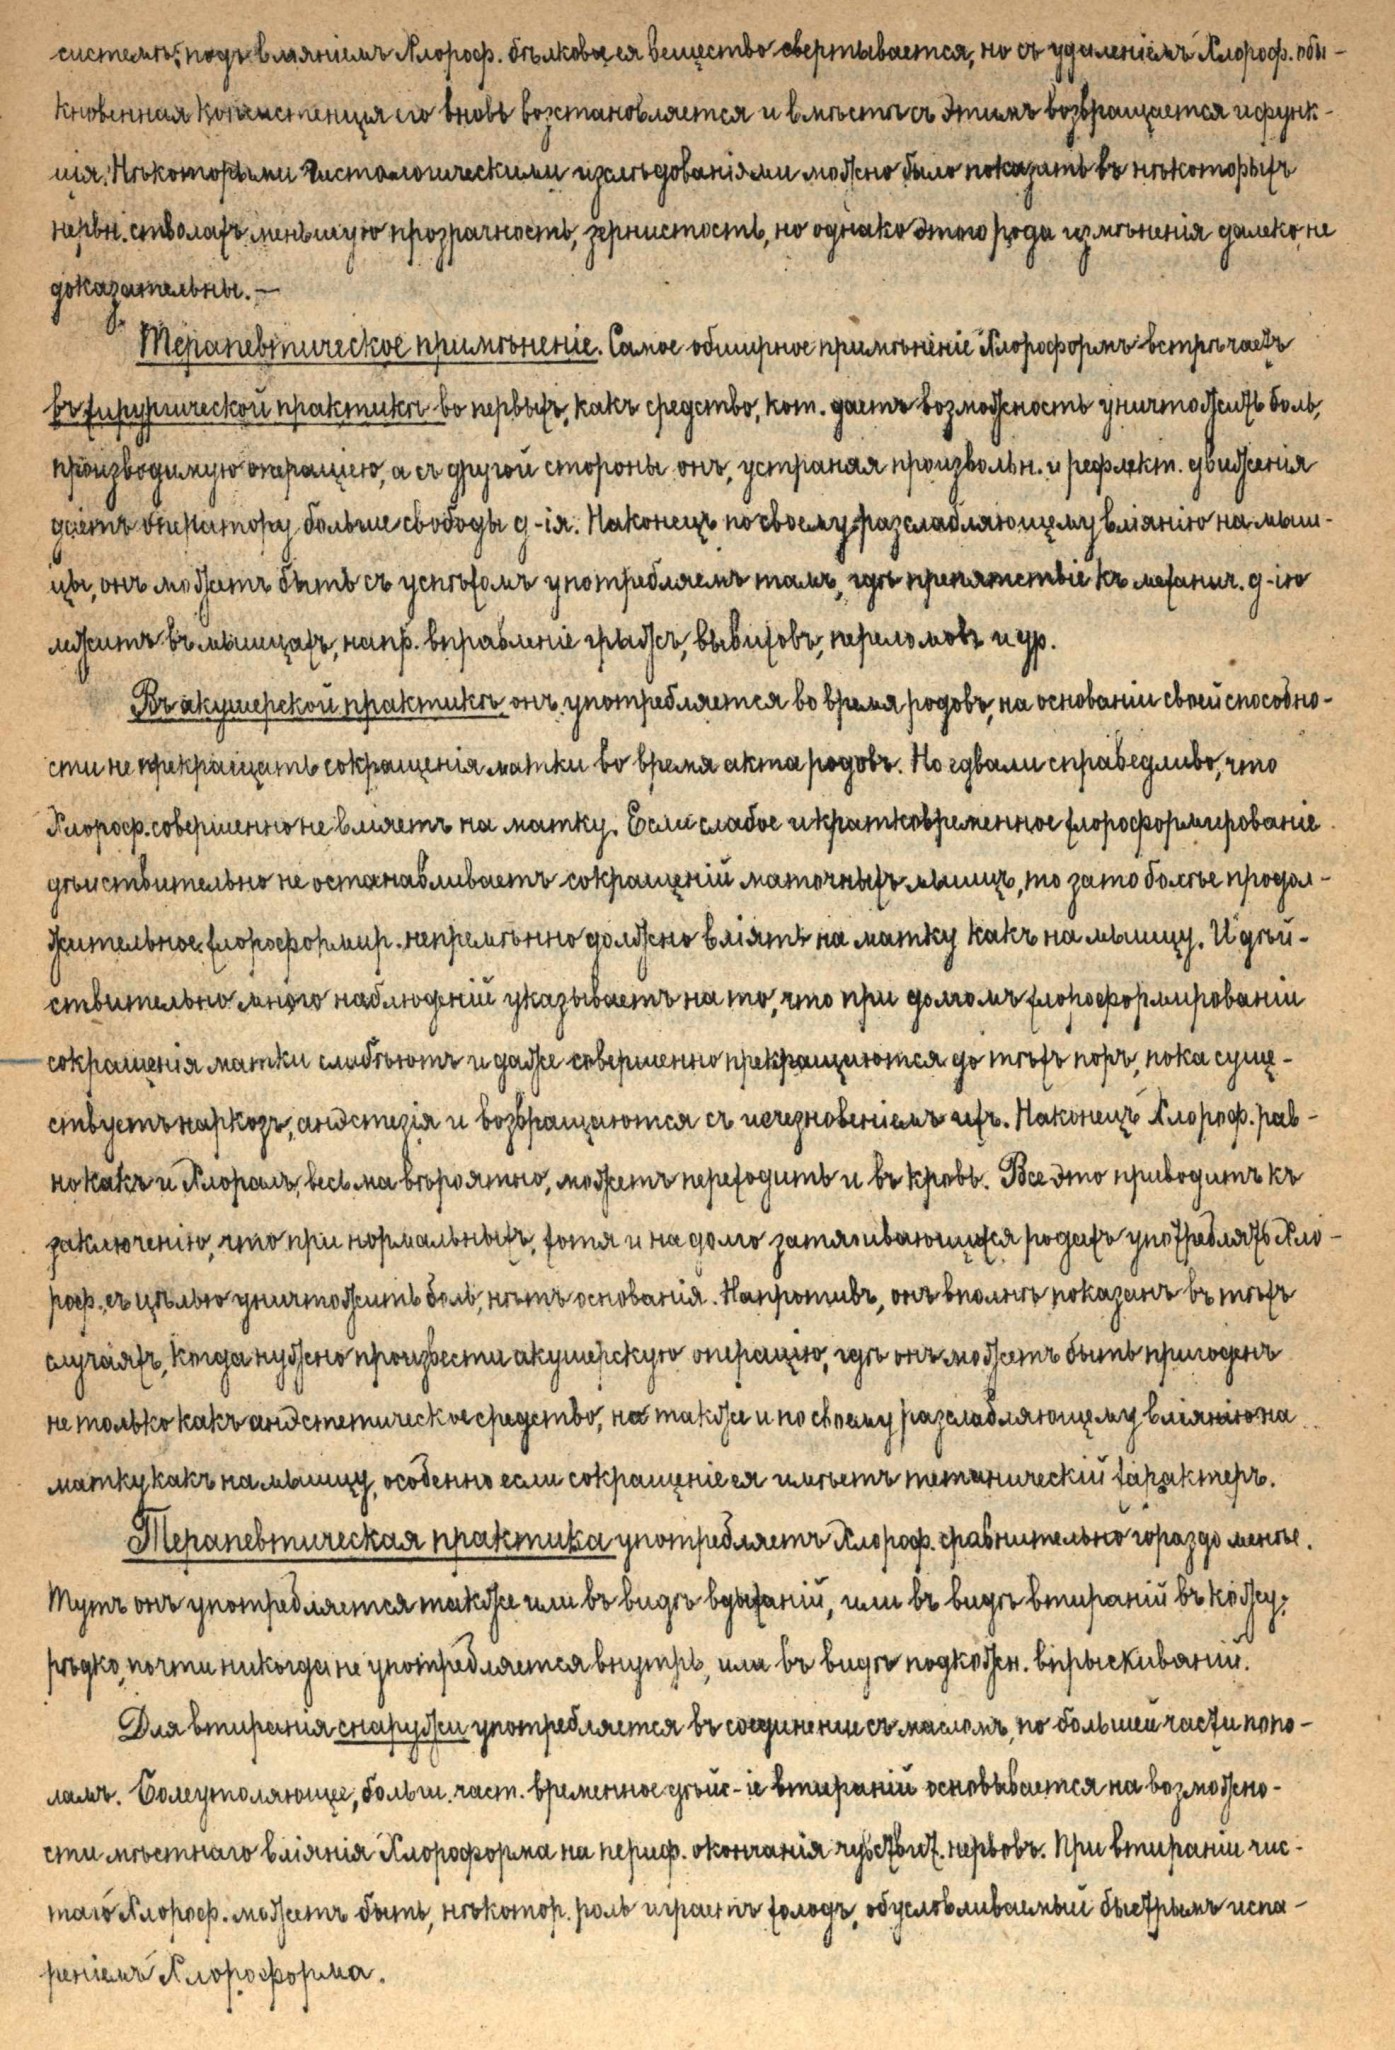 системѣ; подъ вліяніемъ Хлороф. бѣлковая ея вещество свертывается, но съ удаленіемъ Хлороф. обы-
кновенная консистенція его вновь возстановляется и вмѣстѣ съ этимъ возвращается и функ-
ція. Нѣкоторыми гистологическими изслѣдованіями можно было показать въ нѣкоторыхъ
нервн. стволахъ меньшую прозрачность, зернистость, но однако этого рода измѣненія далеко не
доказательны. —
Терапевтическое примѣненіе. Самое обширное примѣненіе Хлороформъ встрѣчаетъ
въ хирургической практикѣ во первыхъ, какъ средство, кот. даетъ возможность уничтожить боль,
производимую операціею, а съ другой стороны онъ, устраняя произвольн. и рефлект. движенія
даетъ оператору больше свободы д-ія. Наконецъ по своему разслабляющему вліянію на мыш-
цы, онъ можетъ быть съ успѣхомъ употребляемъ тамъ, гдѣ препятствіе къ механич. д-ію
лежитъ въ мышцахъ, напр. вправленіе грыжъ, вывиховъ, переломовъ и др.
Въ акушерской практикѣ онъ употребляется во время родовъ, на основаніи своей способно-
сти не прекращать сокращенія матки во время акта родовъ. Но едвали справедливо, что
Хлороф. совершенно не вліяетъ на матку. Если слабое и кратковременное хлороформированіе
дѣйствительно не останавливаетъ сокращеній маточныхъ мышцъ, то зато болѣе продол-
жительное хлороформир. непремѣнно должно вліять на матку какъ на мышцу. И дѣй-
ствительно много наблюденій указываетъ на то, что при долгомъ хлороформированіи
сокращенія матки слабѣютъ и даже совершенно прекращаются до тѣхъ поръ, пока суще-
ствуетъ наркозъ, анэстезія и возвращаются съ исчезновеніемъ ихъ. Наконецъ Хлороф. рав-
но какъ и Хлоралъ, весьма вѣроятно, можетъ переходить и въ кровь. Все это приводитъ къ
заключенію, что при нормальныхъ, хотя и на долго затягивающихся родахъ употреблять Хло-
роф., съ цѣлью уничтожить боль, нѣтъ основанія. Напротивъ, онъ вполнѣ показанъ въ тѣхъ
случаяхъ, когда нужно произвести акушерскую операцію, гдѣ онъ можетъ быть пригоденъ
не только какъ анэстетическое средство, но также и по своему разслабляющему вліянію на
матку какъ на мышцу, особенно если сокращеніе ея имѣетъ тетаническій характеръ.
Терапевтическая практика употребляетъ Хлороф. сравнительно гораздо менѣе.
Тутъ онъ употребляется также или въ видѣ вдыханій, или въ видѣ втираній въ кожу;
рѣдко, почти никогда не употребляется внутрь, или въ видѣ подкожн. впрыскиваній.
Для втиранія снаружи употребляется въ соединеніи съ масломъ, по большей части попо-
ламъ. Болеутоляющее, больш. част. временное дѣйс-іе втираній основывается на возможно-
сти мѣстнаго вліянія Хлороформа на периф. окончанія чувствит. нервовъ. При втираніи чис-
таго Хлороф. можетъ быть, нѣкотор. роль играетъ холодъ, обусловливаемый быстрымъ испа-
реніемъ Хлороформа.